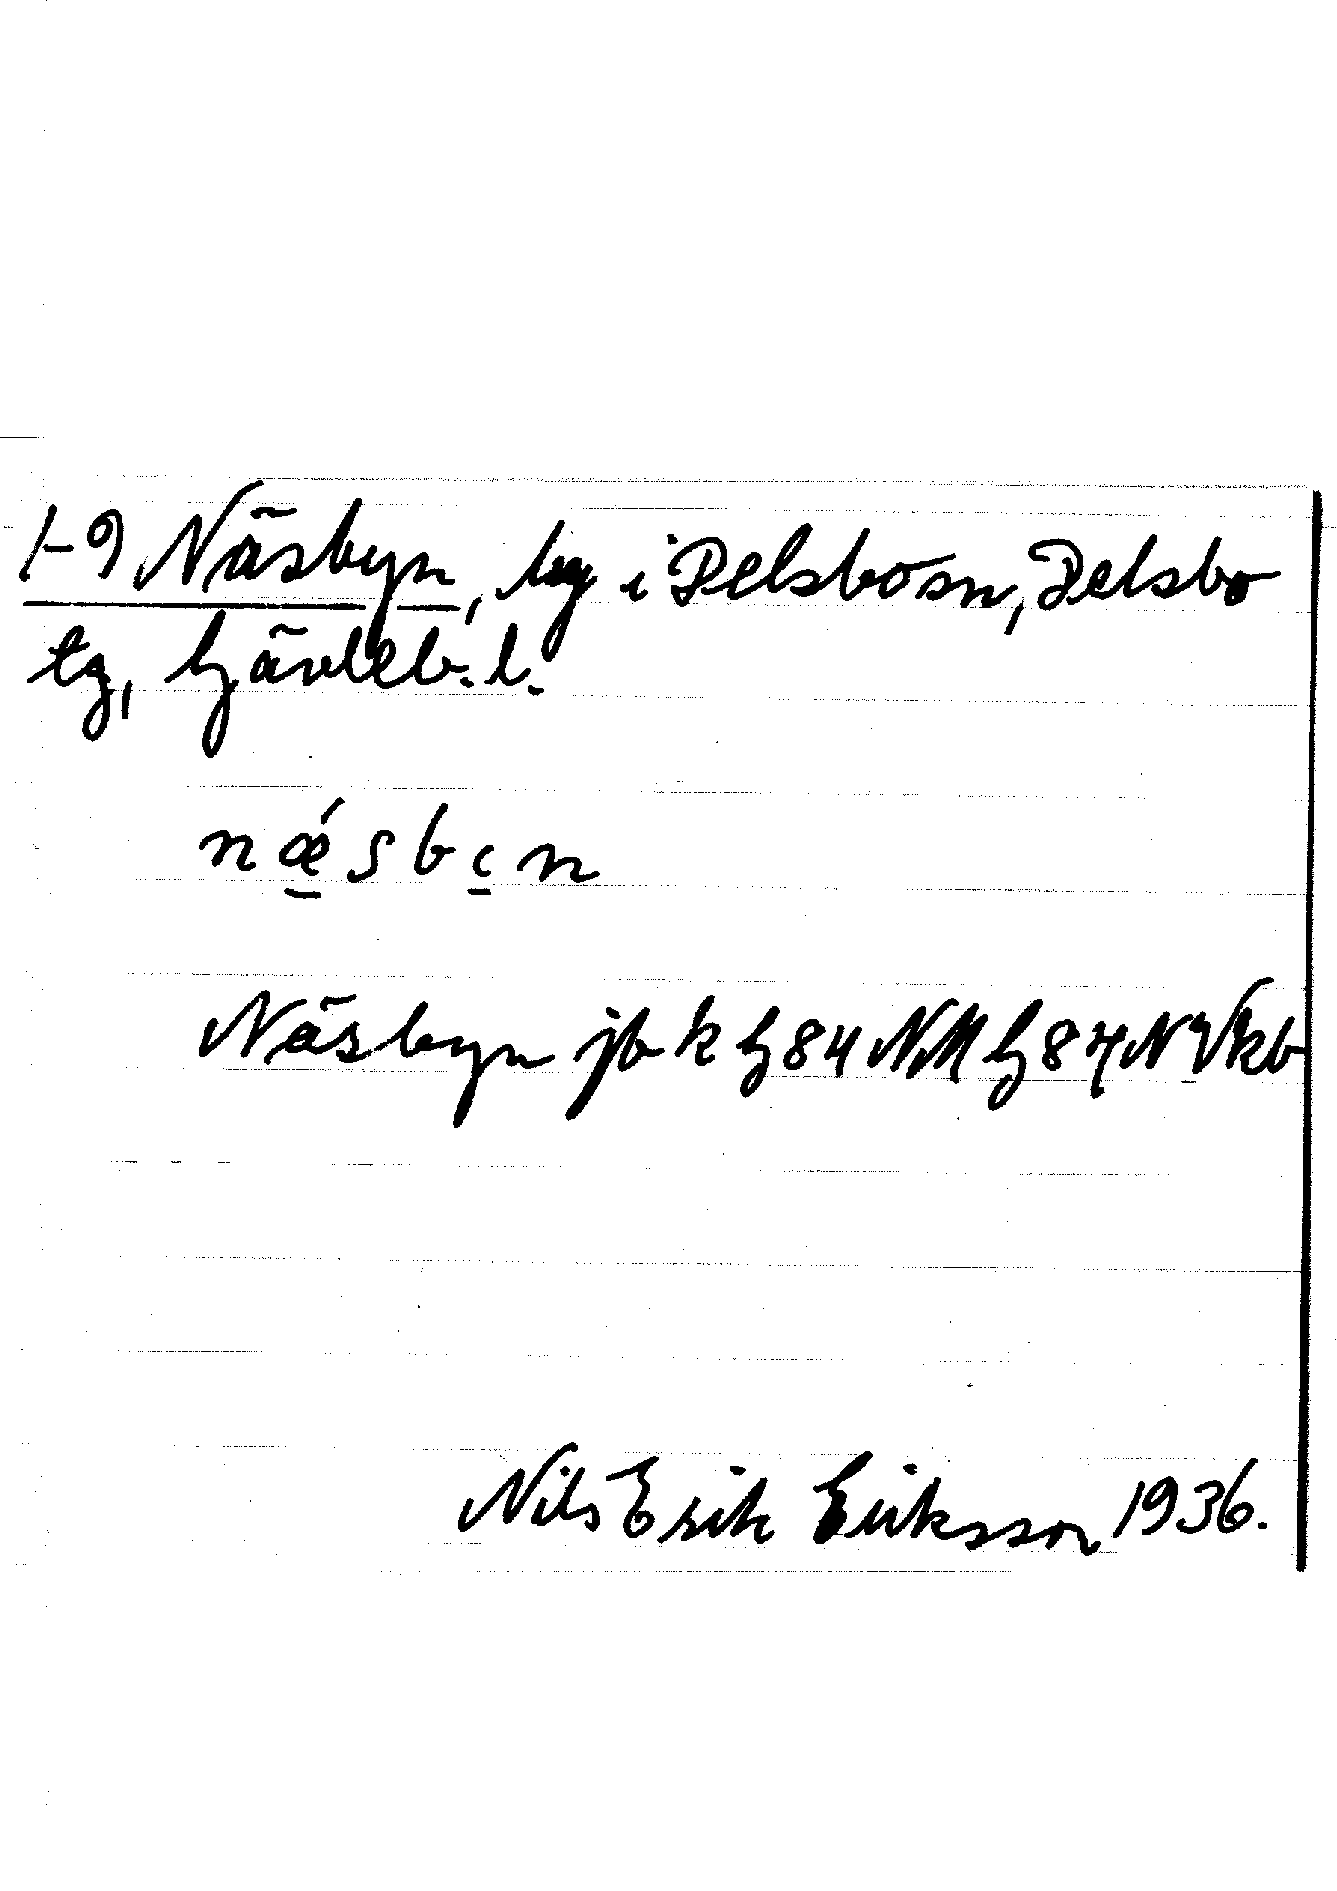 1-9 Näsbyn, by i Delsbo sn, Delsbo
tg, Gävleb. l.
nǽ̲sbɩ̲n
Näsbyn jb k G84 NM G84 N Vkb
Nils Erik Eriksson 1936.